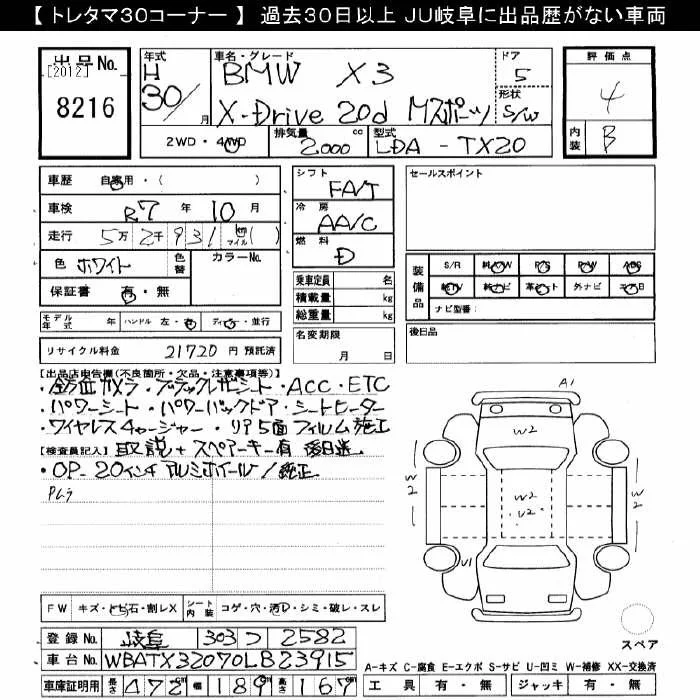 【 トレタマ30コーナー 】 過去30日以上 JU岐阜に出品歴がない車両
出品No.
[2012]
8216
年式
H
30/
月
車名・グレード
BMW X3
X-Drive 20d Mスポーツ
ドア
5
形状
S/W
評価点
4
内装
B
2WD・4WD
排気量
2000 cc
型式
LDA - TX20
車歴 自家用・( )
車検 R7 年 10 月
走行 5万 2千 9 3 1 km マイル ( )
色 ホワイト
色替
カラーNo.
保証書 有・無
シフト
FA/T
冷房
AA/C
燃料
D
乗車定員 名
積載量 kg
総重量 kg
名変期限
月 日
セールスポイント
装備品
S/R 純AW P/S P/W ABS
純TV 純ナビ 革シート 外ナビ エアB
ナビ型番:
後日品
モデル年式 年 ハンドル 左・右 ディーラー・並行
リサイクル料金 21720 円 預託済
【出品店申告欄(不良箇所・欠品・注意事項等)】
・全方位カメラ・ブラックレザーシート・ACC・ETC
・パワーシート・パワーバックドア・シートヒーター
・ワイヤレスチャージャー・リア5面フィルム施工
【検査員記入】 取説+スペアーキー有 後日送
・OP-20インチアルミホイール/純正
A1
W2
W2
W2
W2
U2
U1
スペア
FW キズ・トビ石・割レX
シート内装 コゲ・穴・汚レ・シミ・破レ・スレ
登録No. 岐阜 303 つ 2582
車台No. WBATX32070LB23915
車庫証明用 長さ 472 cm 幅 189 cm 高さ 167 cm
A-キズ C-腐食 E-エクボ S-サビ U-凹ミ W-補修 XX-交換済
工具 有・無 ジャッキ 有・無